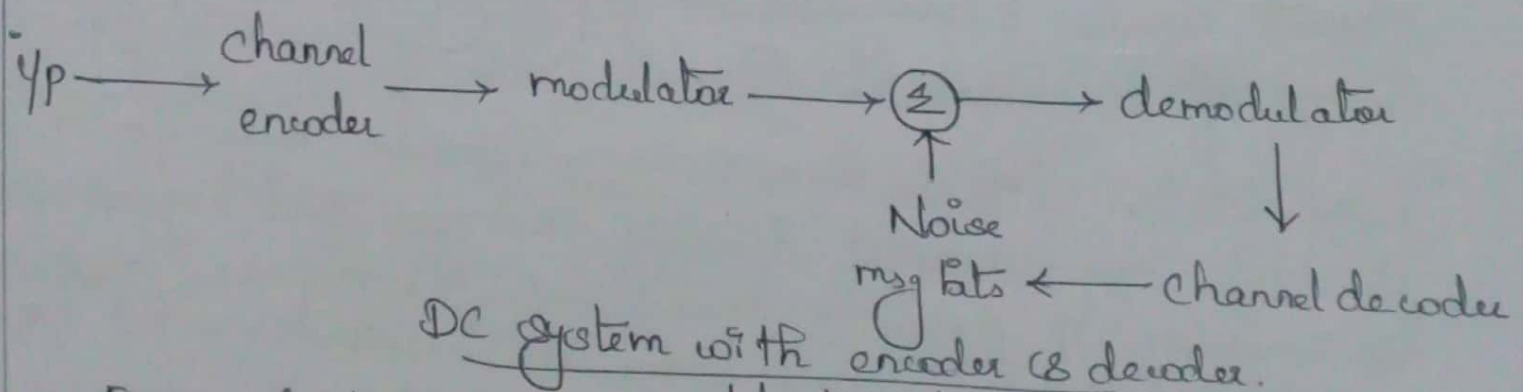 i/p → channel encoder → modulator → Σ → demodulator
↑ ↓
Noise
msg bits ← channel decoder
DC system with encoder & decoder.